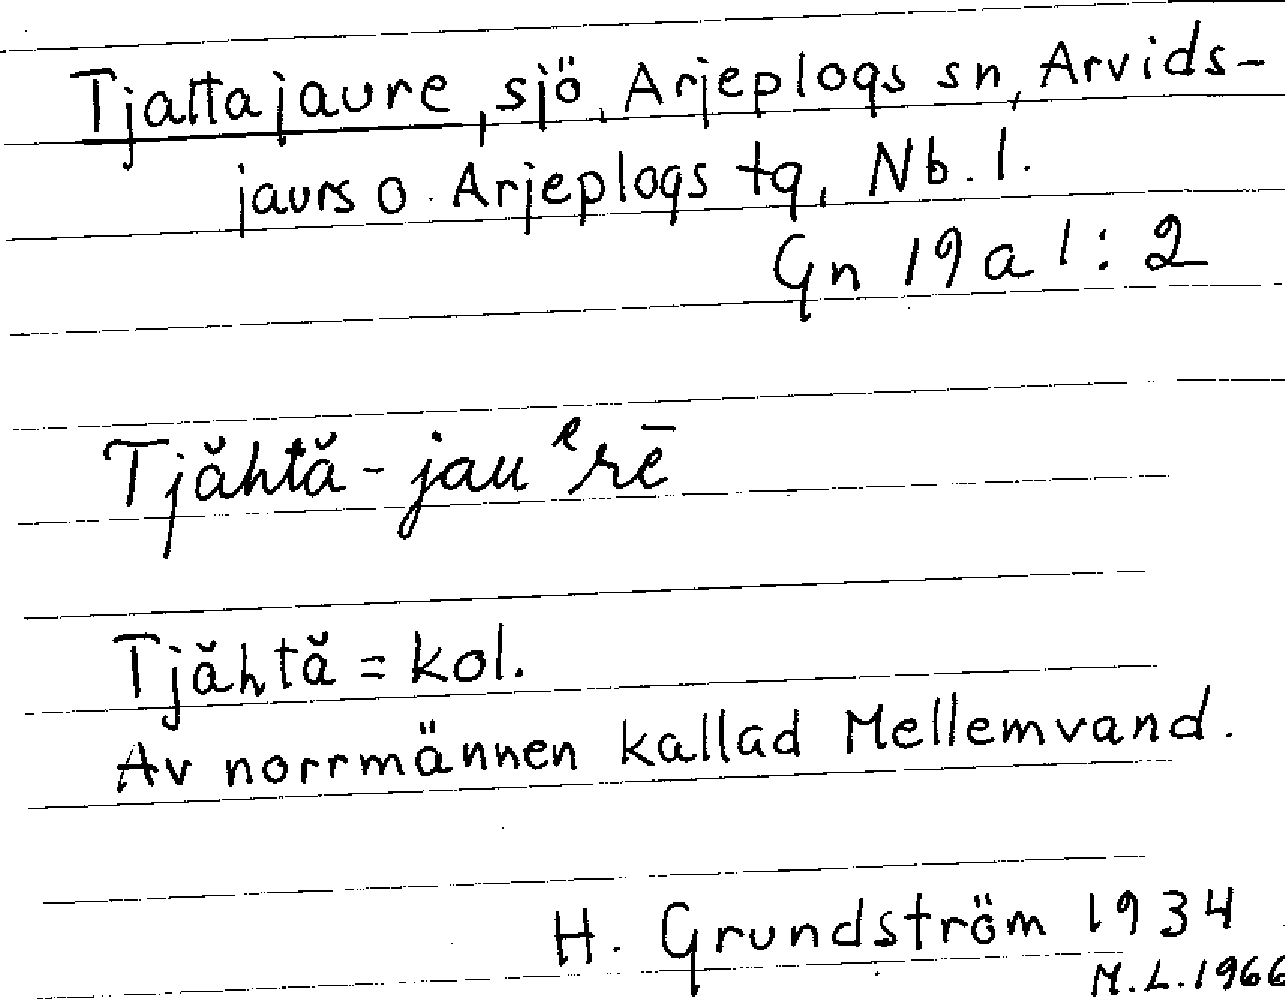 Tjattajaure, sjö, Arjeplogs sn, Arvids-
jaurs o. Arjeplogs tg, Nb. l.
Gn 19 a 1 : 2
Tjăhtă - jauᵉrē
Tjăhtă = kol.
Av norrmännen kallad Mellemvand.
H. Grundström 1934
M.L. 1966